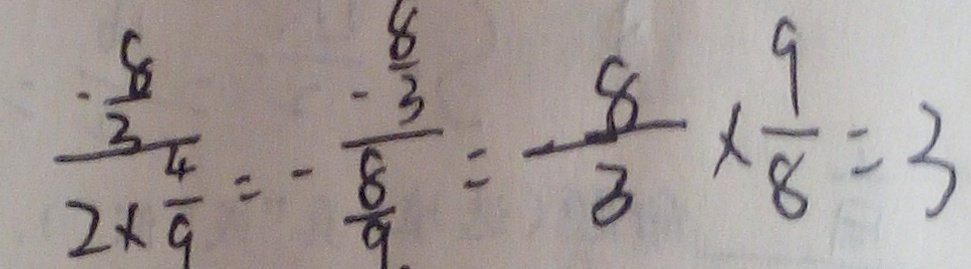 \frac{-\frac{8}{3}}{2 \times \frac{4}{9}} = - \frac{-\frac{8}{3}}{\frac{8}{9}} = -\frac{8}{3} \times \frac{9}{8} = 3